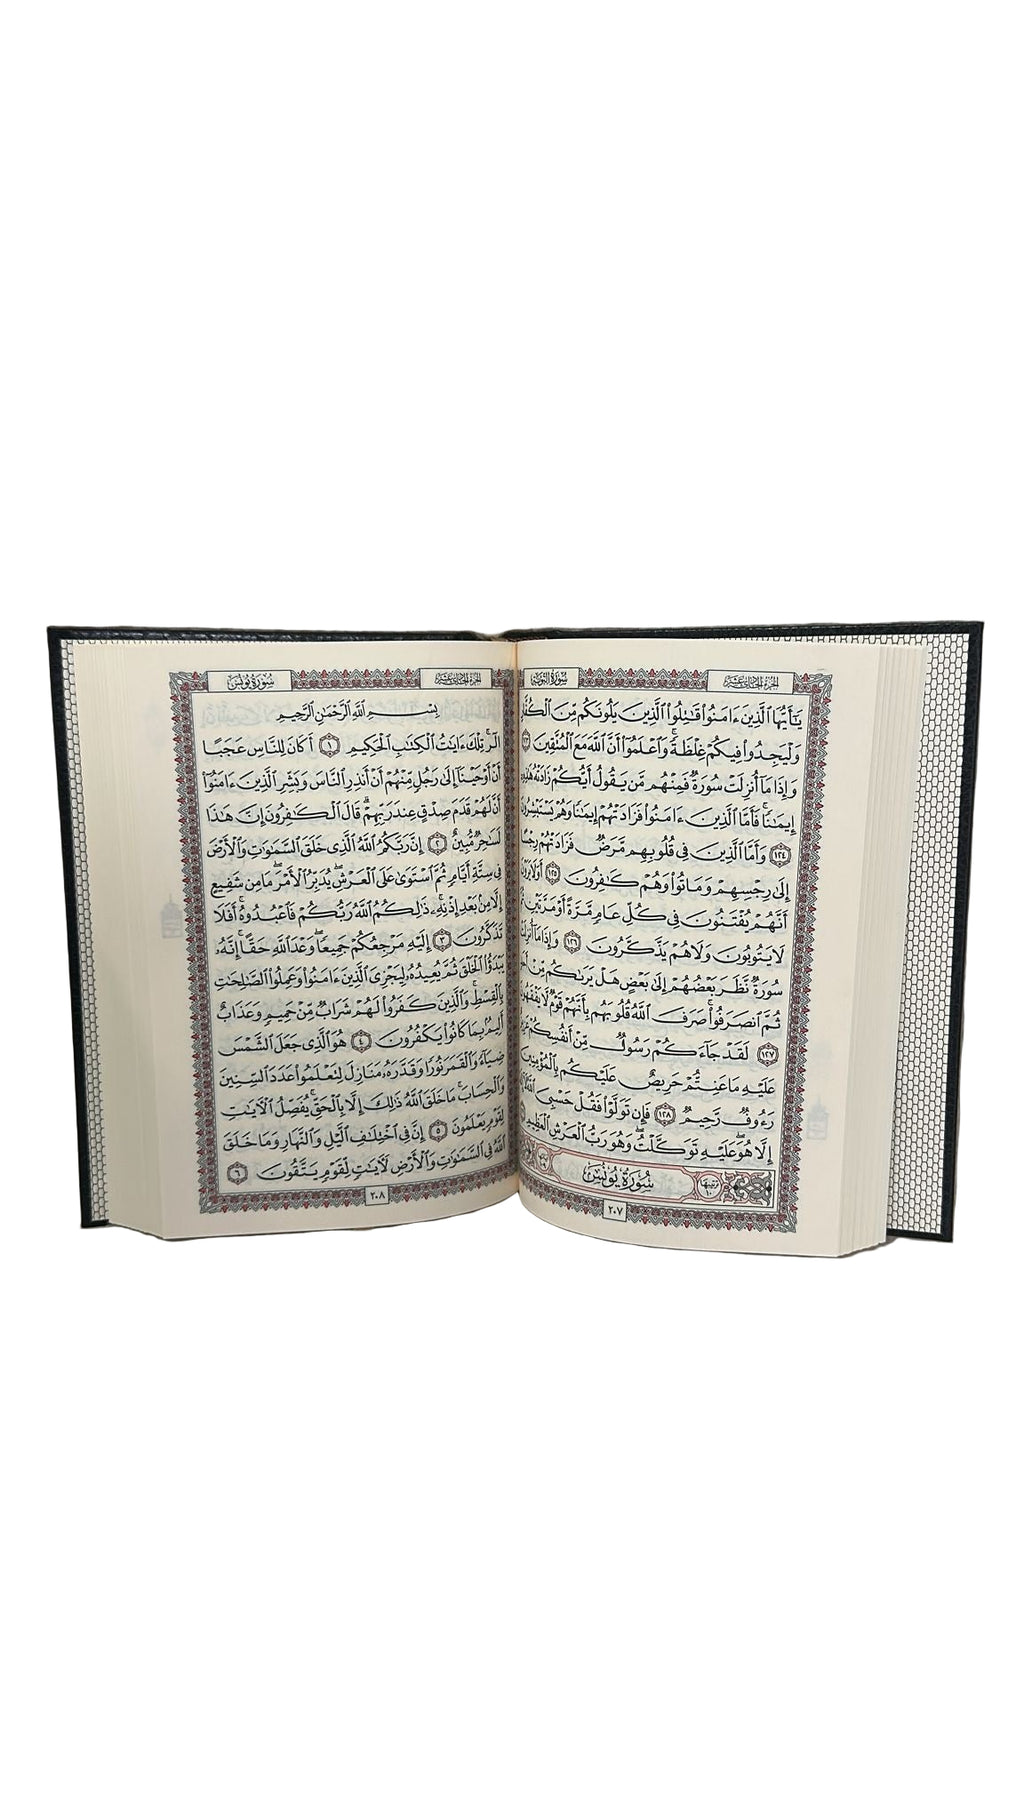 الجزء الحادي عشر
سورة التوبة
يَٰٓأَيُّهَا ٱلَّذِينَ ءَامَنُوا۟ قَٰتِلُوا۟ ٱلَّذِينَ يَلُونَكُم مِّنَ ٱلْكُفَّارِ
وَلْيَجِدُوا۟ فِيكُمْ غِلْظَةً ۚ وَٱعْلَمُوٓا۟ أَنَّ ٱللَّهَ مَعَ ٱلْمُتَّقِينَ
وَإِذَا مَآ أُنزِلَتْ سُورَةٌ فَمِنْهُم مَّن يَقُولُ أَيُّكُمْ زَادَتْهُ هَٰذِهِ
إِيمَٰنًا ۚ فَأَمَّا ٱلَّذِينَ ءَامَنُوا۟ فَزَادَتْهُمْ إِيمَٰنًا وَهُمْ يَسْتَبْشِرُونَ
١٢٤ وَأَمَّا ٱلَّذِينَ فِى قُلُوبِهِم مَّرَضٌ فَزَادَتْهُمْ رِجْسًا
إِلَىٰ رِجْسِهِمْ وَمَاتُوا۟ وَهُمْ كَٰفِرُونَ ١٢٥ أَوَلَا يَرَوْنَ
أَنَّهُمْ يُفْتَنُونَ فِى كُلِّ عَامٍ مَّرَّةً أَوْ مَرَّتَيْنِ
لَا يَتُوبُونَ وَلَا هُمْ يَذَّكَّرُونَ ١٢٦ وَإِذَا مَآ أُنزِلَتْ
سُورَةٌ نَّظَرَ بَعْضُهُمْ إِلَىٰ بَعْضٍ هَلْ يَرَىٰكُم مِّنْ
ثُمَّ ٱنصَرَفُوا۟ ۚ صَرَفَ ٱللَّهُ قُلُوبَهُم بِأَنَّهُمْ قَوْمٌ لَّا يَفْقَهُونَ
١٢٧ لَقَدْ جَآءَكُمْ رَسُولٌ مِّنْ أَنفُسِكُمْ
عَلَيْهِ مَا عَنِتُّمْ حَرِيصٌ عَلَيْكُم بِٱلْمُؤْمِنِينَ
رَءُوفٌ رَّحِيمٌ ١٢٨ فَإِن تَوَلَّوْا۟ فَقُلْ حَسْبِىَ ٱللَّهُ
إِلَّا هُوَ ۖ عَلَيْهِ تَوَكَّلْتُ ۖ وَهُوَ رَبُّ ٱلْعَرْشِ ٱلْعَظِيمِ
ترتيبها ١٠ سُورَةُ يُونُسَ
٢٠٧
الجزء الحادي عشر
سورة يونس
بِسْمِ ٱللَّهِ ٱلرَّحْمَٰنِ ٱلرَّحِيمِ
الٓر ۚ تِلْكَ ءَايَٰتُ ٱلْكِتَٰبِ ٱلْحَكِيمِ ١ أَكَانَ لِلنَّاسِ عَجَبًا
أَنْ أَوْحَيْنَآ إِلَىٰ رَجُلٍ مِّنْهُمْ أَنْ أَنذِرِ ٱلنَّاسَ وَبَشِّرِ ٱلَّذِينَ ءَامَنُوٓا۟
أَنَّ لَهُمْ قَدَمَ صِدْقٍ عِندَ رَبِّهِمْ ۗ قَالَ ٱلْكَٰفِرُونَ إِنَّ هَٰذَا
لَسَٰحِرٌ مُّبِينٌ ٢ إِنَّ رَبَّكُمُ ٱللَّهُ ٱلَّذِى خَلَقَ ٱلسَّمَٰوَٰتِ وَٱلْأَرْضَ
فِى سِتَّةِ أَيَّامٍ ثُمَّ ٱسْتَوَىٰ عَلَى ٱلْعَرْشِ ۖ يُدَبِّرُ ٱلْأَمْرَ ۖ مَا مِن شَفِيعٍ
إِلَّا مِنۢ بَعْدِ إِذْنِهِۦ ۚ ذَٰلِكُمُ ٱللَّهُ رَبُّكُمْ فَٱعْبُدُوهُ ۚ أَفَلَا
تَذَكَّرُونَ ٣ إِلَيْهِ مَرْجِعُكُمْ جَمِيعًا ۖ وَعْدَ ٱللَّهِ حَقًّا ۚ إِنَّهُۥ
يَبْدَؤُا۟ ٱلْخَلْقَ ثُمَّ يُعِيدُهُۥ لِيَجْزِىَ ٱلَّذِينَ ءَامَنُوا۟ وَعَمِلُوا۟ ٱلصَّٰلِحَٰتِ
بِٱلْقِسْطِ ۚ وَٱلَّذِينَ كَفَرُوا۟ لَهُمْ شَرَابٌ مِّنْ حَمِيمٍ وَعَذَابٌ
أَلِيمٌۢ بِمَا كَانُوا۟ يَكْفُرُونَ ٤ هُوَ ٱلَّذِى جَعَلَ ٱلشَّمْسَ
ضِيَآءً وَٱلْقَمَرَ نُورًا وَقَدَّرَهُۥ مَنَازِلَ لِتَعْلَمُوا۟ عَدَدَ ٱلسِّنِينَ
وَٱلْحِسَابَ ۚ مَا خَلَقَ ٱللَّهُ ذَٰلِكَ إِلَّا بِٱلْحَقِّ ۚ يُفَصِّلُ ٱلْءَايَٰتِ
لِقَوْمٍ يَعْلَمُونَ ٥ إِنَّ فِى ٱخْتِلَٰفِ ٱلَّيْلِ وَٱلنَّهَارِ وَمَا خَلَقَ
ٱللَّهُ فِى ٱلسَّمَٰوَٰتِ وَٱلْأَرْضِ لَءَايَٰتٍ لِّقَوْمٍ يَتَّقُونَ ٦
٢٠٨